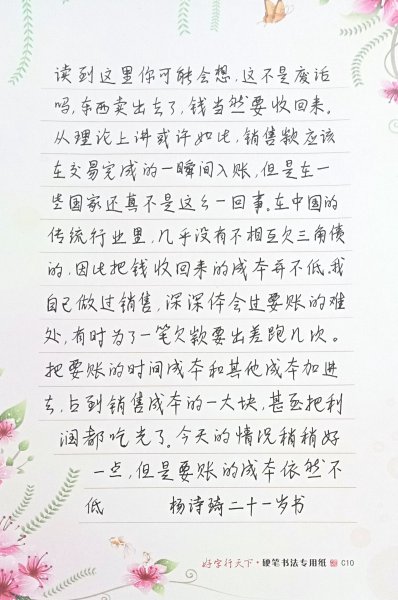 读到这里你可能会想,这不是废话
吗,东西卖出去了,钱当然要收回来。
从理论上讲或许如此,销售款应该
在交易完成的一瞬间入账,但是在一
些国家还真不是这么一回事。在中国的
传统行业里,几乎没有不相互欠三角债
的,因此把钱收回来的成本并不低,我
自己做过销售,深深体会过要账的难
处,有时为了一笔欠款要出差跑几次。
把要账的时间成本和其他成本加进
去,占到销售成本的一大块,甚至把利
润都吃光了。今天的情况稍稍好
一点,但是要账的成本依然不
低 杨诗琦二十一岁书
好字行天下·硬笔书法专用纸 C10